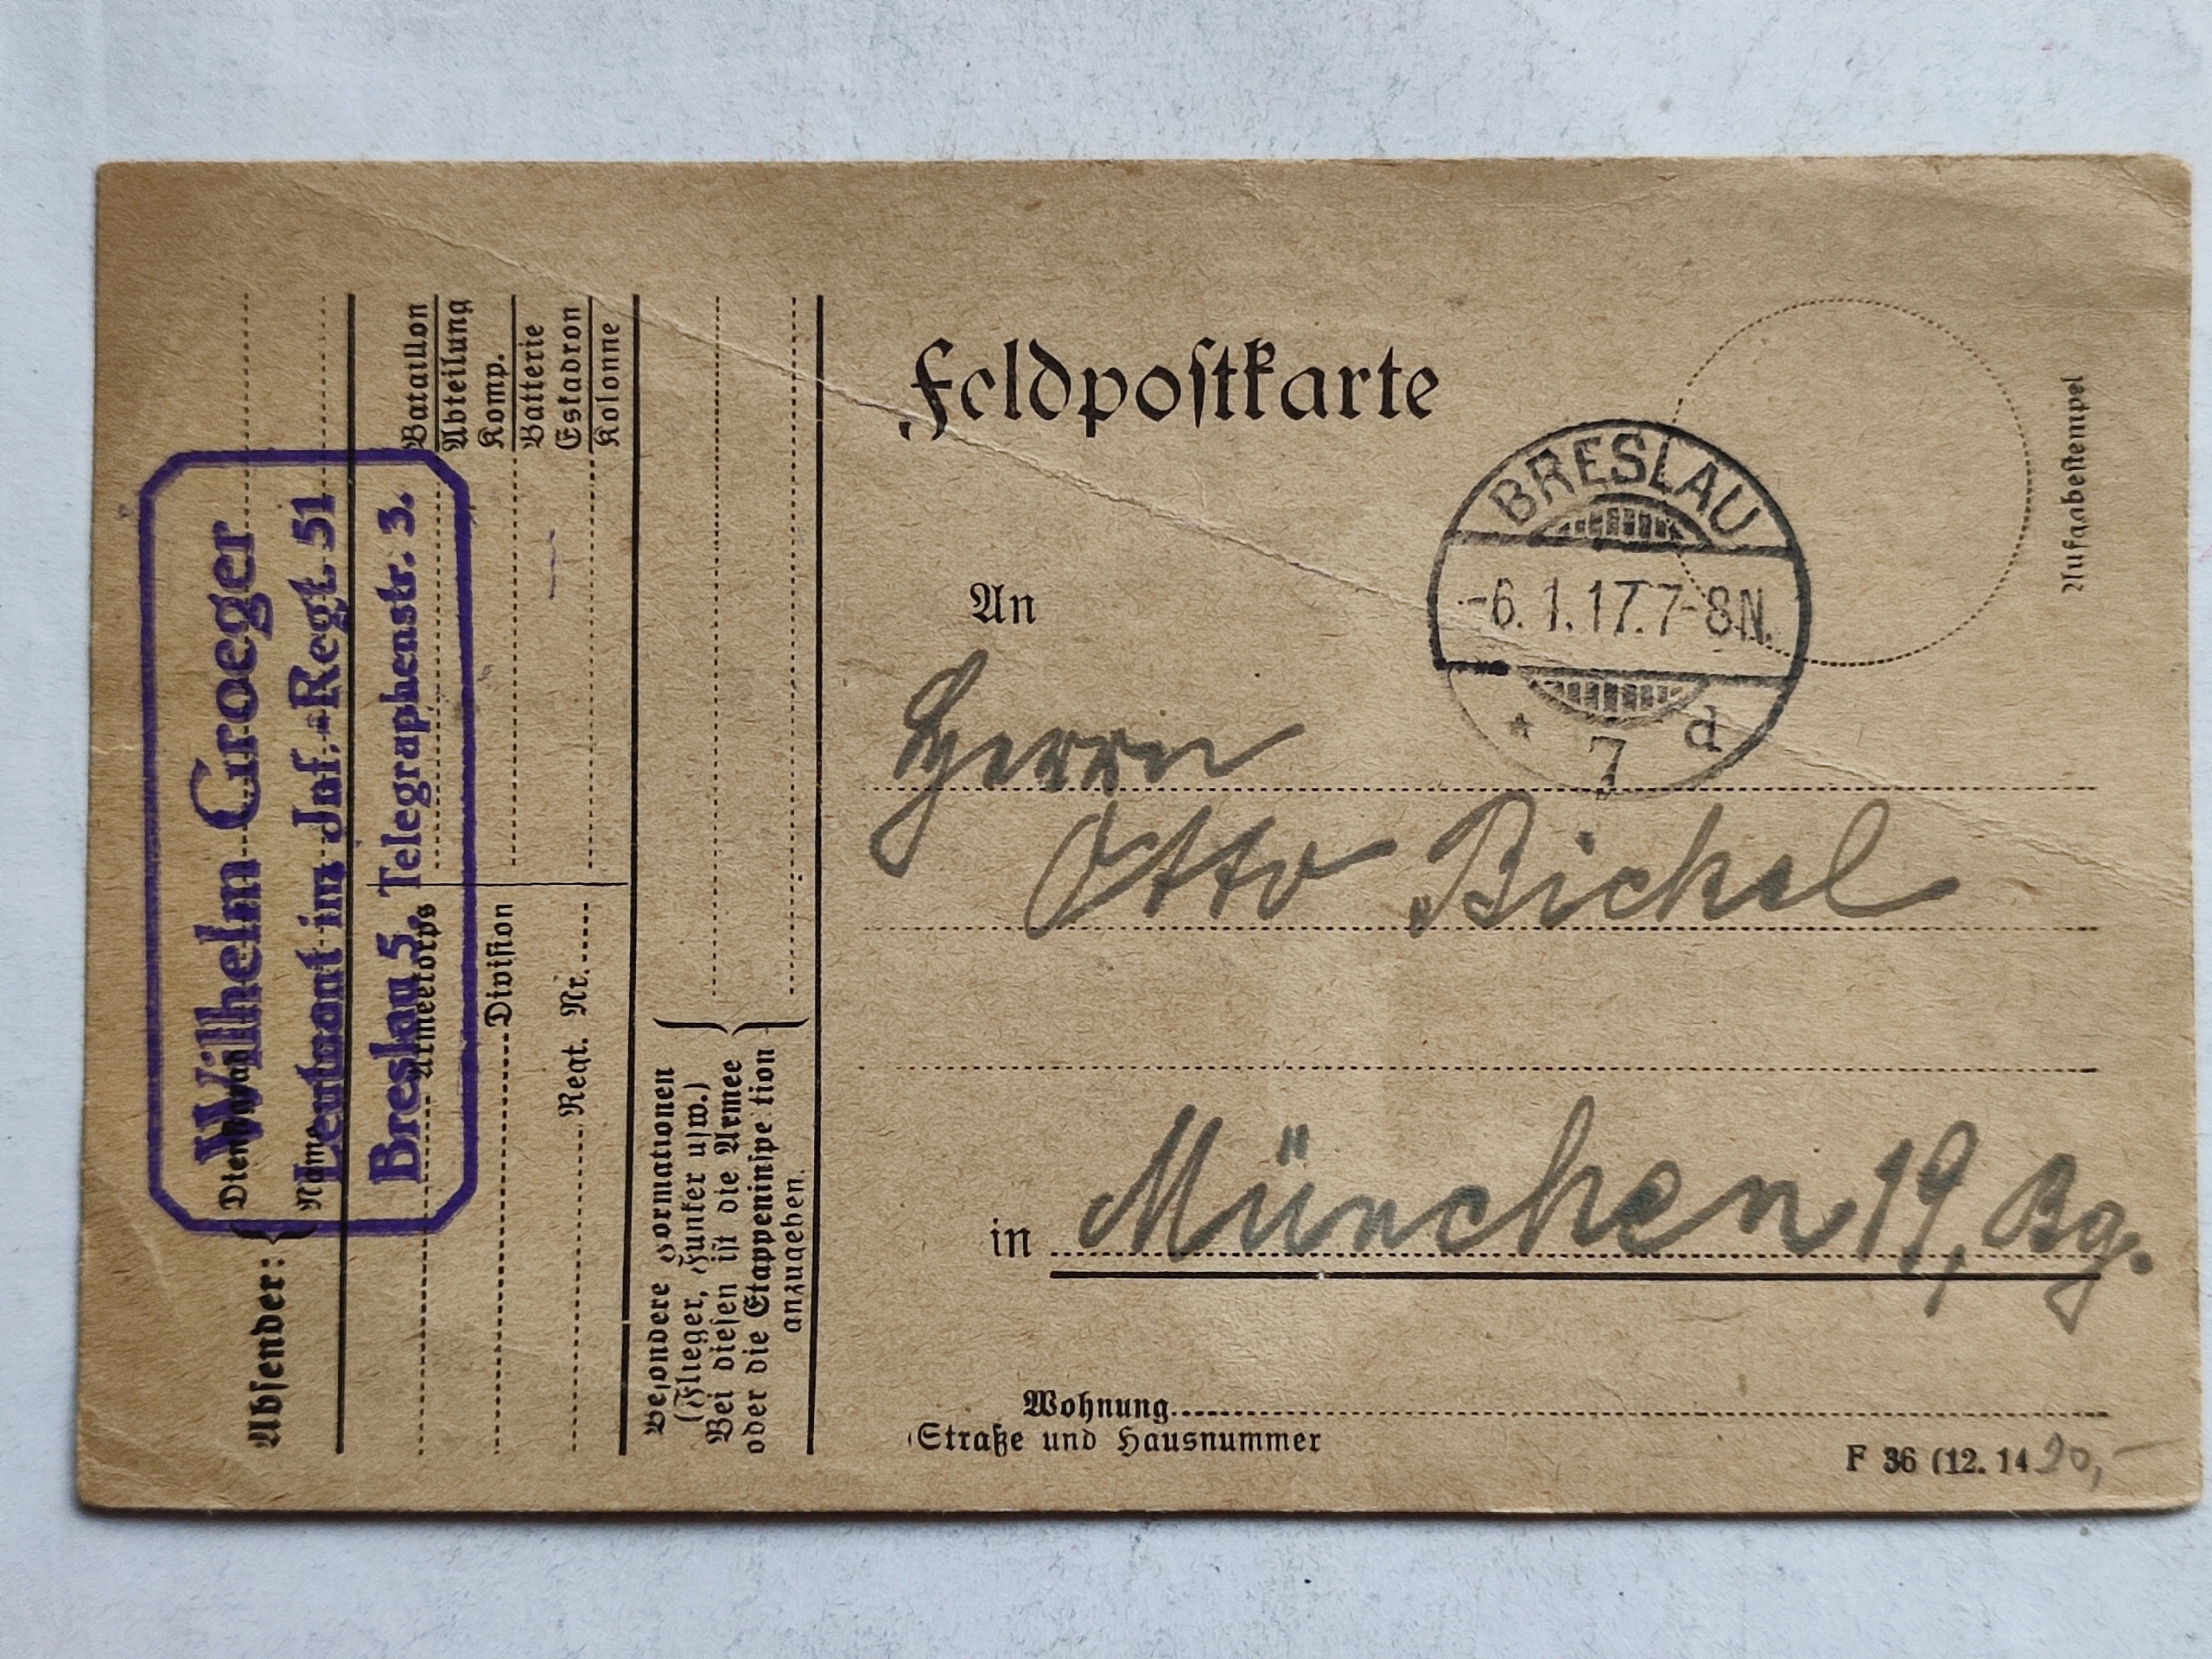 Absender:
Dienstgrad
Name
Wilhelm Groeger
Leutnant im Inf.-Regt. 51
Breslau 5, Telegraphenstr. 3.
Armeekorps
Division
Regt. Nr.
Bataillon
Abteilung
Komp.
Batterie
Eskadron
Kolonne
Besondere Formationen
(Flieger, Funker usw.)
Bei diesen ist die Armee
oder die Etappeninspe tion
anzugeben.
Feldpostkarte
Aufgabestempel
BRESLAU
-6.1.17.7-8N.
* 7 d
An
Herrn
Otto Bickel
in München 19, Bg.
Wohnung
Straße und Hausnummer
F 36 (12. 14
20,-